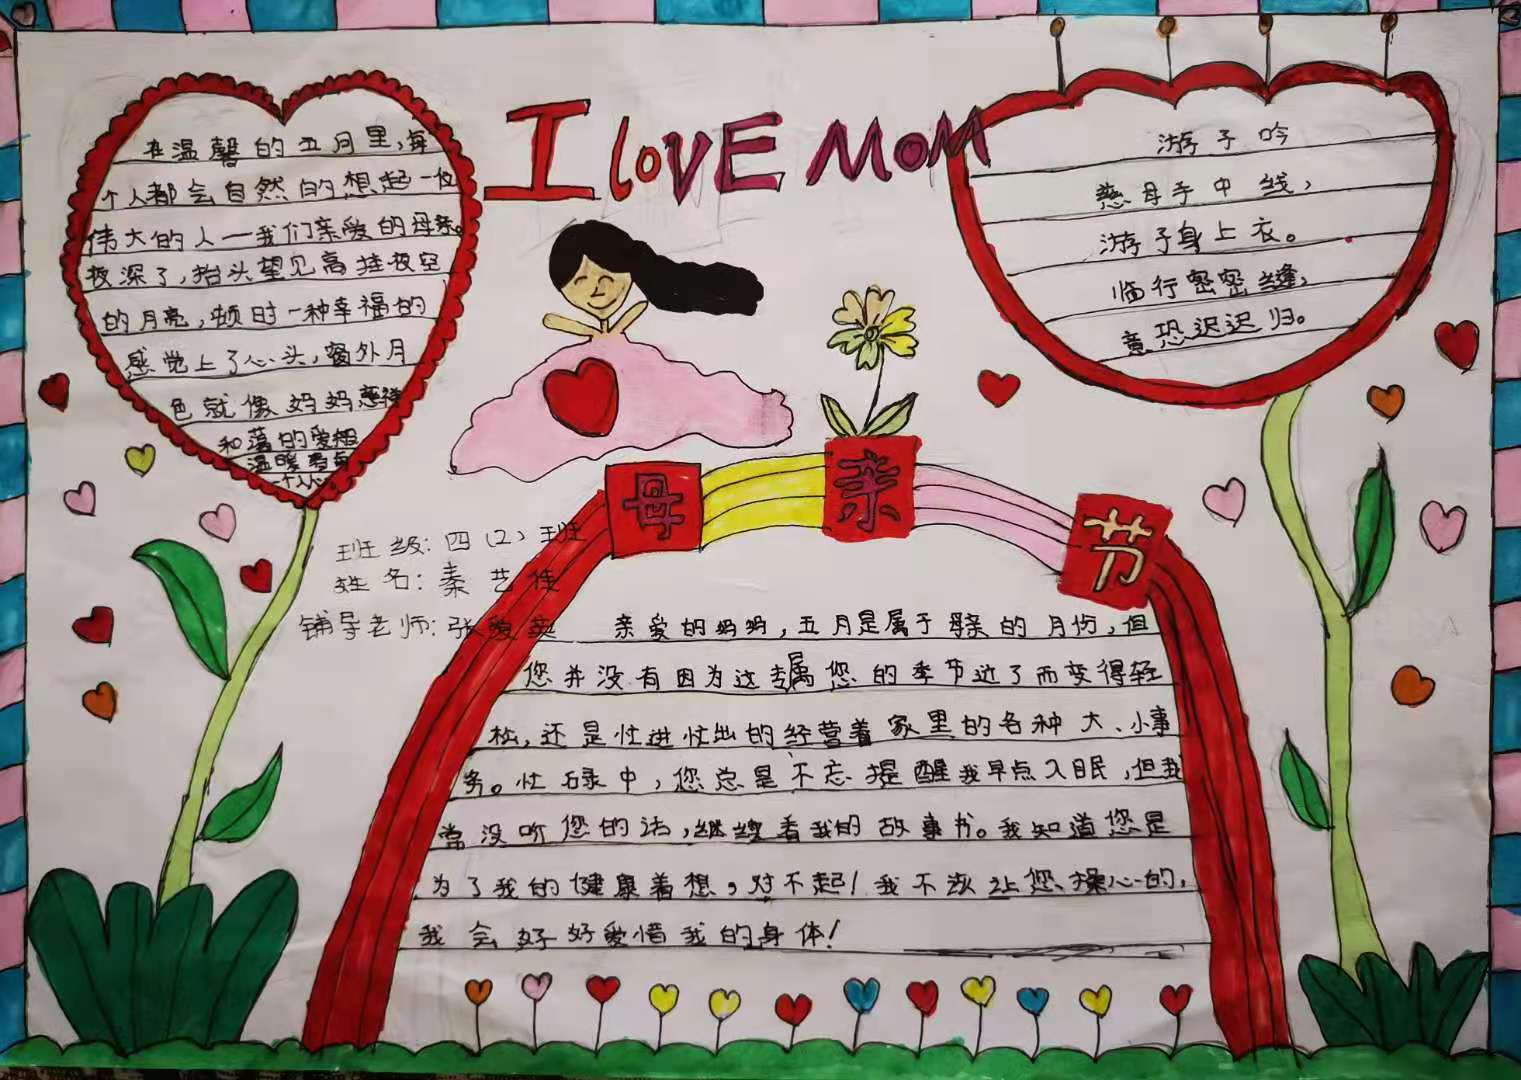 I loVE MOM
在温馨的五月里,每
个人都会自然的想起一位
伟大的人—我们亲爱的母亲。
夜深了,抬头望见高挂夜空
的月亮,顿时一种幸福的
感觉上了心头,窗外月
色就像妈妈慈祥
和蔼的爱抚
温暖着每
一个人心
游子吟
慈母手中线,
游子身上衣。
临行密密缝,
意恐迟迟归。
母亲节
班级:四(2)班
姓名:秦艺佳
辅导老师:张
亲爱的妈妈,五月是属于母亲的月份,但
您并没有因为这专属您的季节近了而变得轻
松,还是忙进忙出的经营着家里的各种大、小事
务。忙碌中,您总是不忘提醒我早点入眠,但我
常没听您的话,继续看我的故事书。我知道您是
为了我的健康着想,对不起!我不敢让您操心的,
我会好好爱惜我的身体!